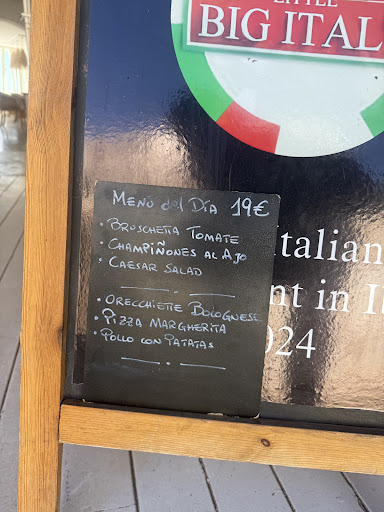 LITTLE
BIG ITAL
MENÚ del DÍA 19€
• BRUSCHETTA TOMATE
• CHAMPIÑONES AL AJO
• CAESAR SALAD
• ORECCHIETTE BOLOGNESE
• PIZZA MARGHERITA
• POLLO CON PATATAS
Italian
nt in I
024